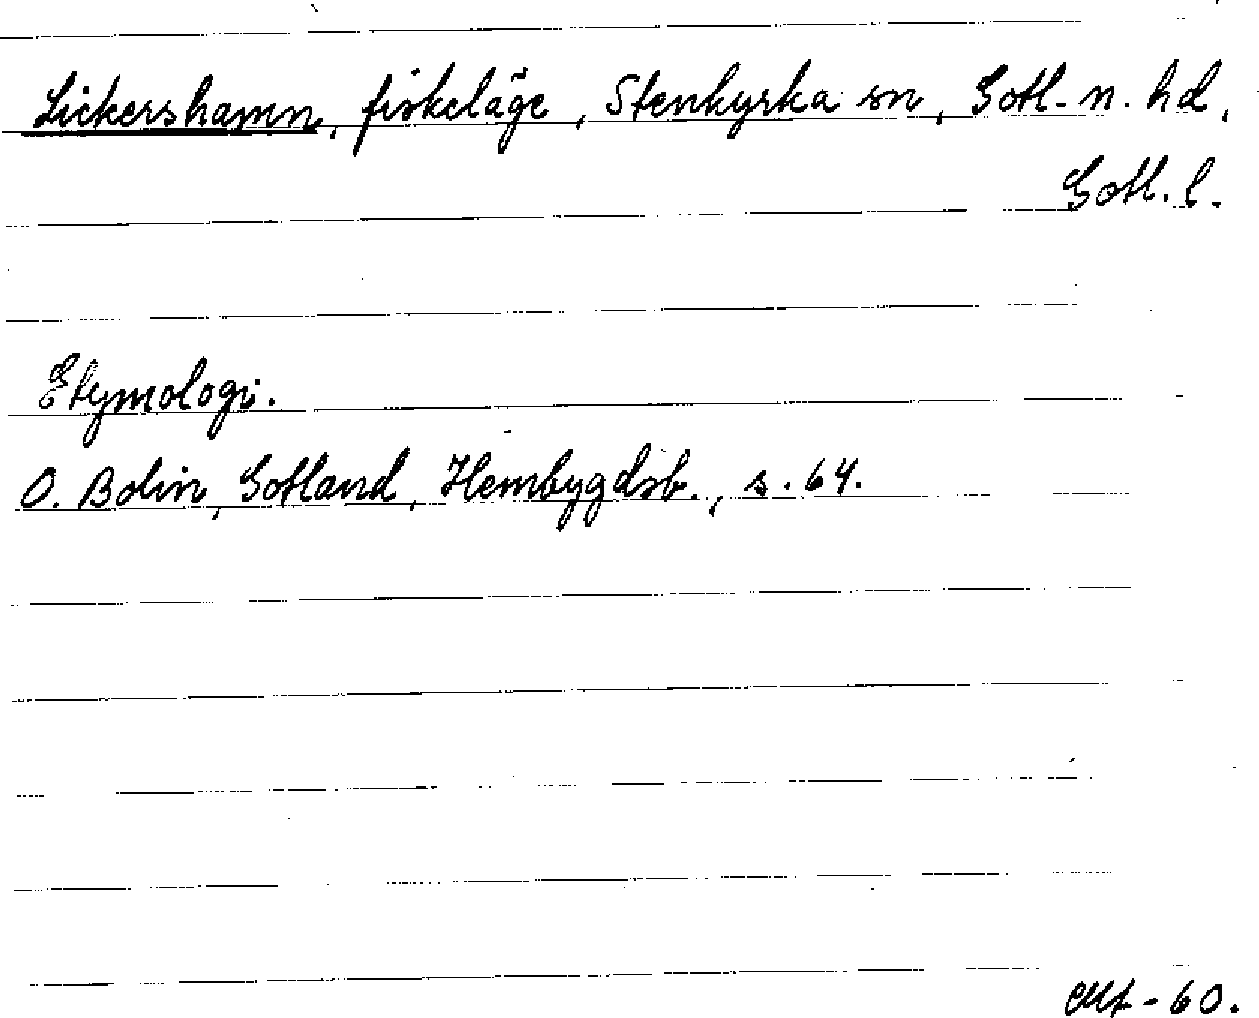 Lickershamn, fiskeläge, Stenkyrka sn, Gotl. n. hd,
Gotl. l.
Etymologi.
O. Bolin, Gotland, Hembygdsb., s. 64.
-60.